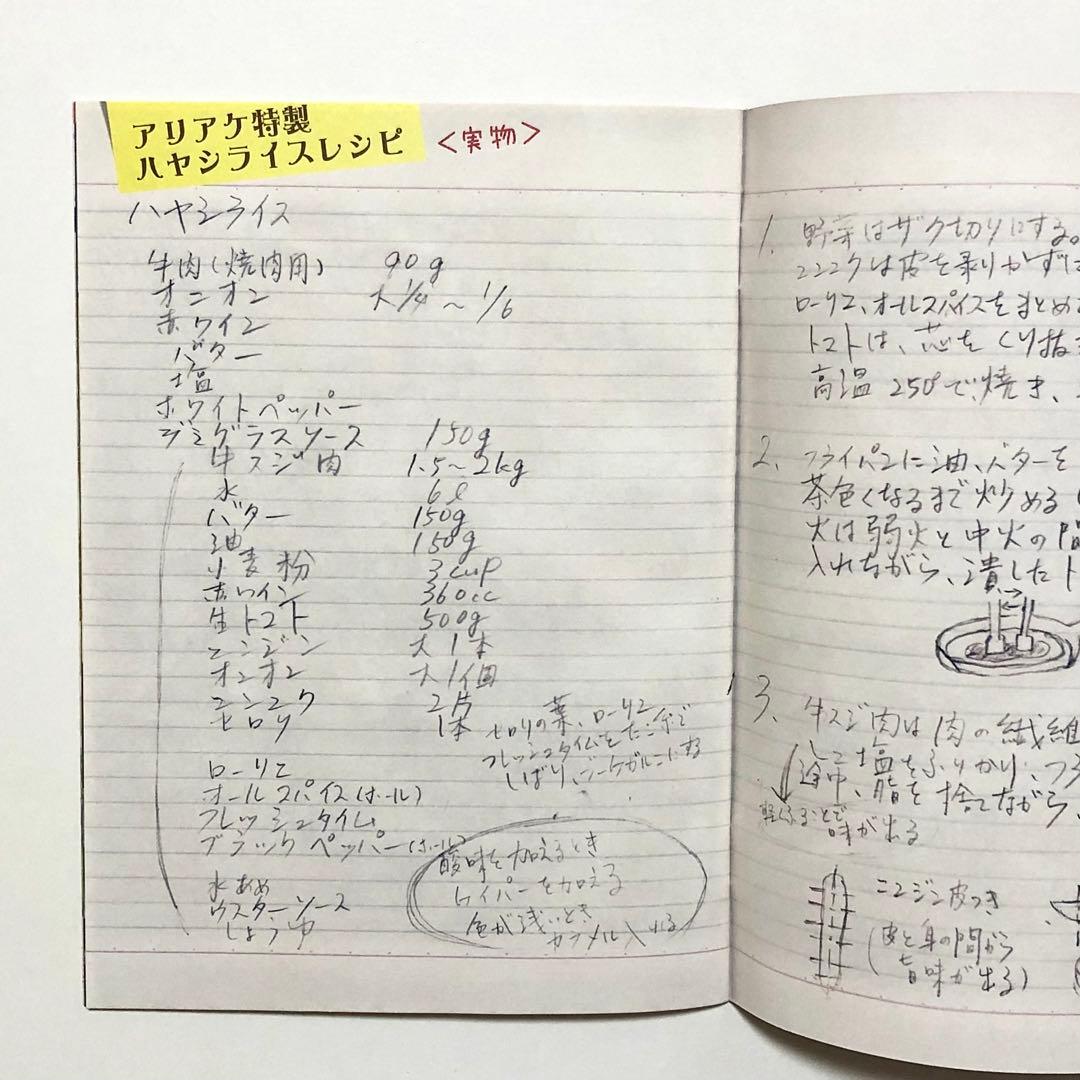 アリアケ特製
ハヤシライスレシピ
<実物>
ハヤシライス
牛肉(焼肉用) 90g
オニオン 大1/4～1/6
赤ワイン
バター
塩
ホワイトペッパー
デミグラスソース 150g
牛スジ肉 1.5～2kg
水 6ℓ
バター 150g
油 150g
小麦粉 3cup
赤ワイン 360cc
生トマト 500g
ニンジン 大1本
オニオン 大1個
ニンニク 2片
セロリ 1本
セロリの葉、ローリエ
フレッシュタイムをたこ糸で
しばり、ブーケガルニにする
ローリエ
オールスパイス(ホール)
フレッシュタイム
ブラックペッパー(ホール)
水あめ
ウスターソース
しょうゆ
酸味を加えるとき
ケイパーを加える
色が浅いとき
カラメル入れる
1. 野菜はザク切りにする。
ニンニクは皮を剥かずに
ローリエ、オールスパイスをまとめ
トマトは、芯をくり抜き
高温250°で焼き、
2. フライパンに油、バターを
茶色くなるまで炒める
火は弱火と中火の間
入れながら、潰したト
3. 牛スジ肉は肉の繊維
して塩をふりかけ、フラ
途中、脂を捨てながら、
軽くふることで
味が出る
ニンジン皮つき
(皮と身の間から
旨味が出る)